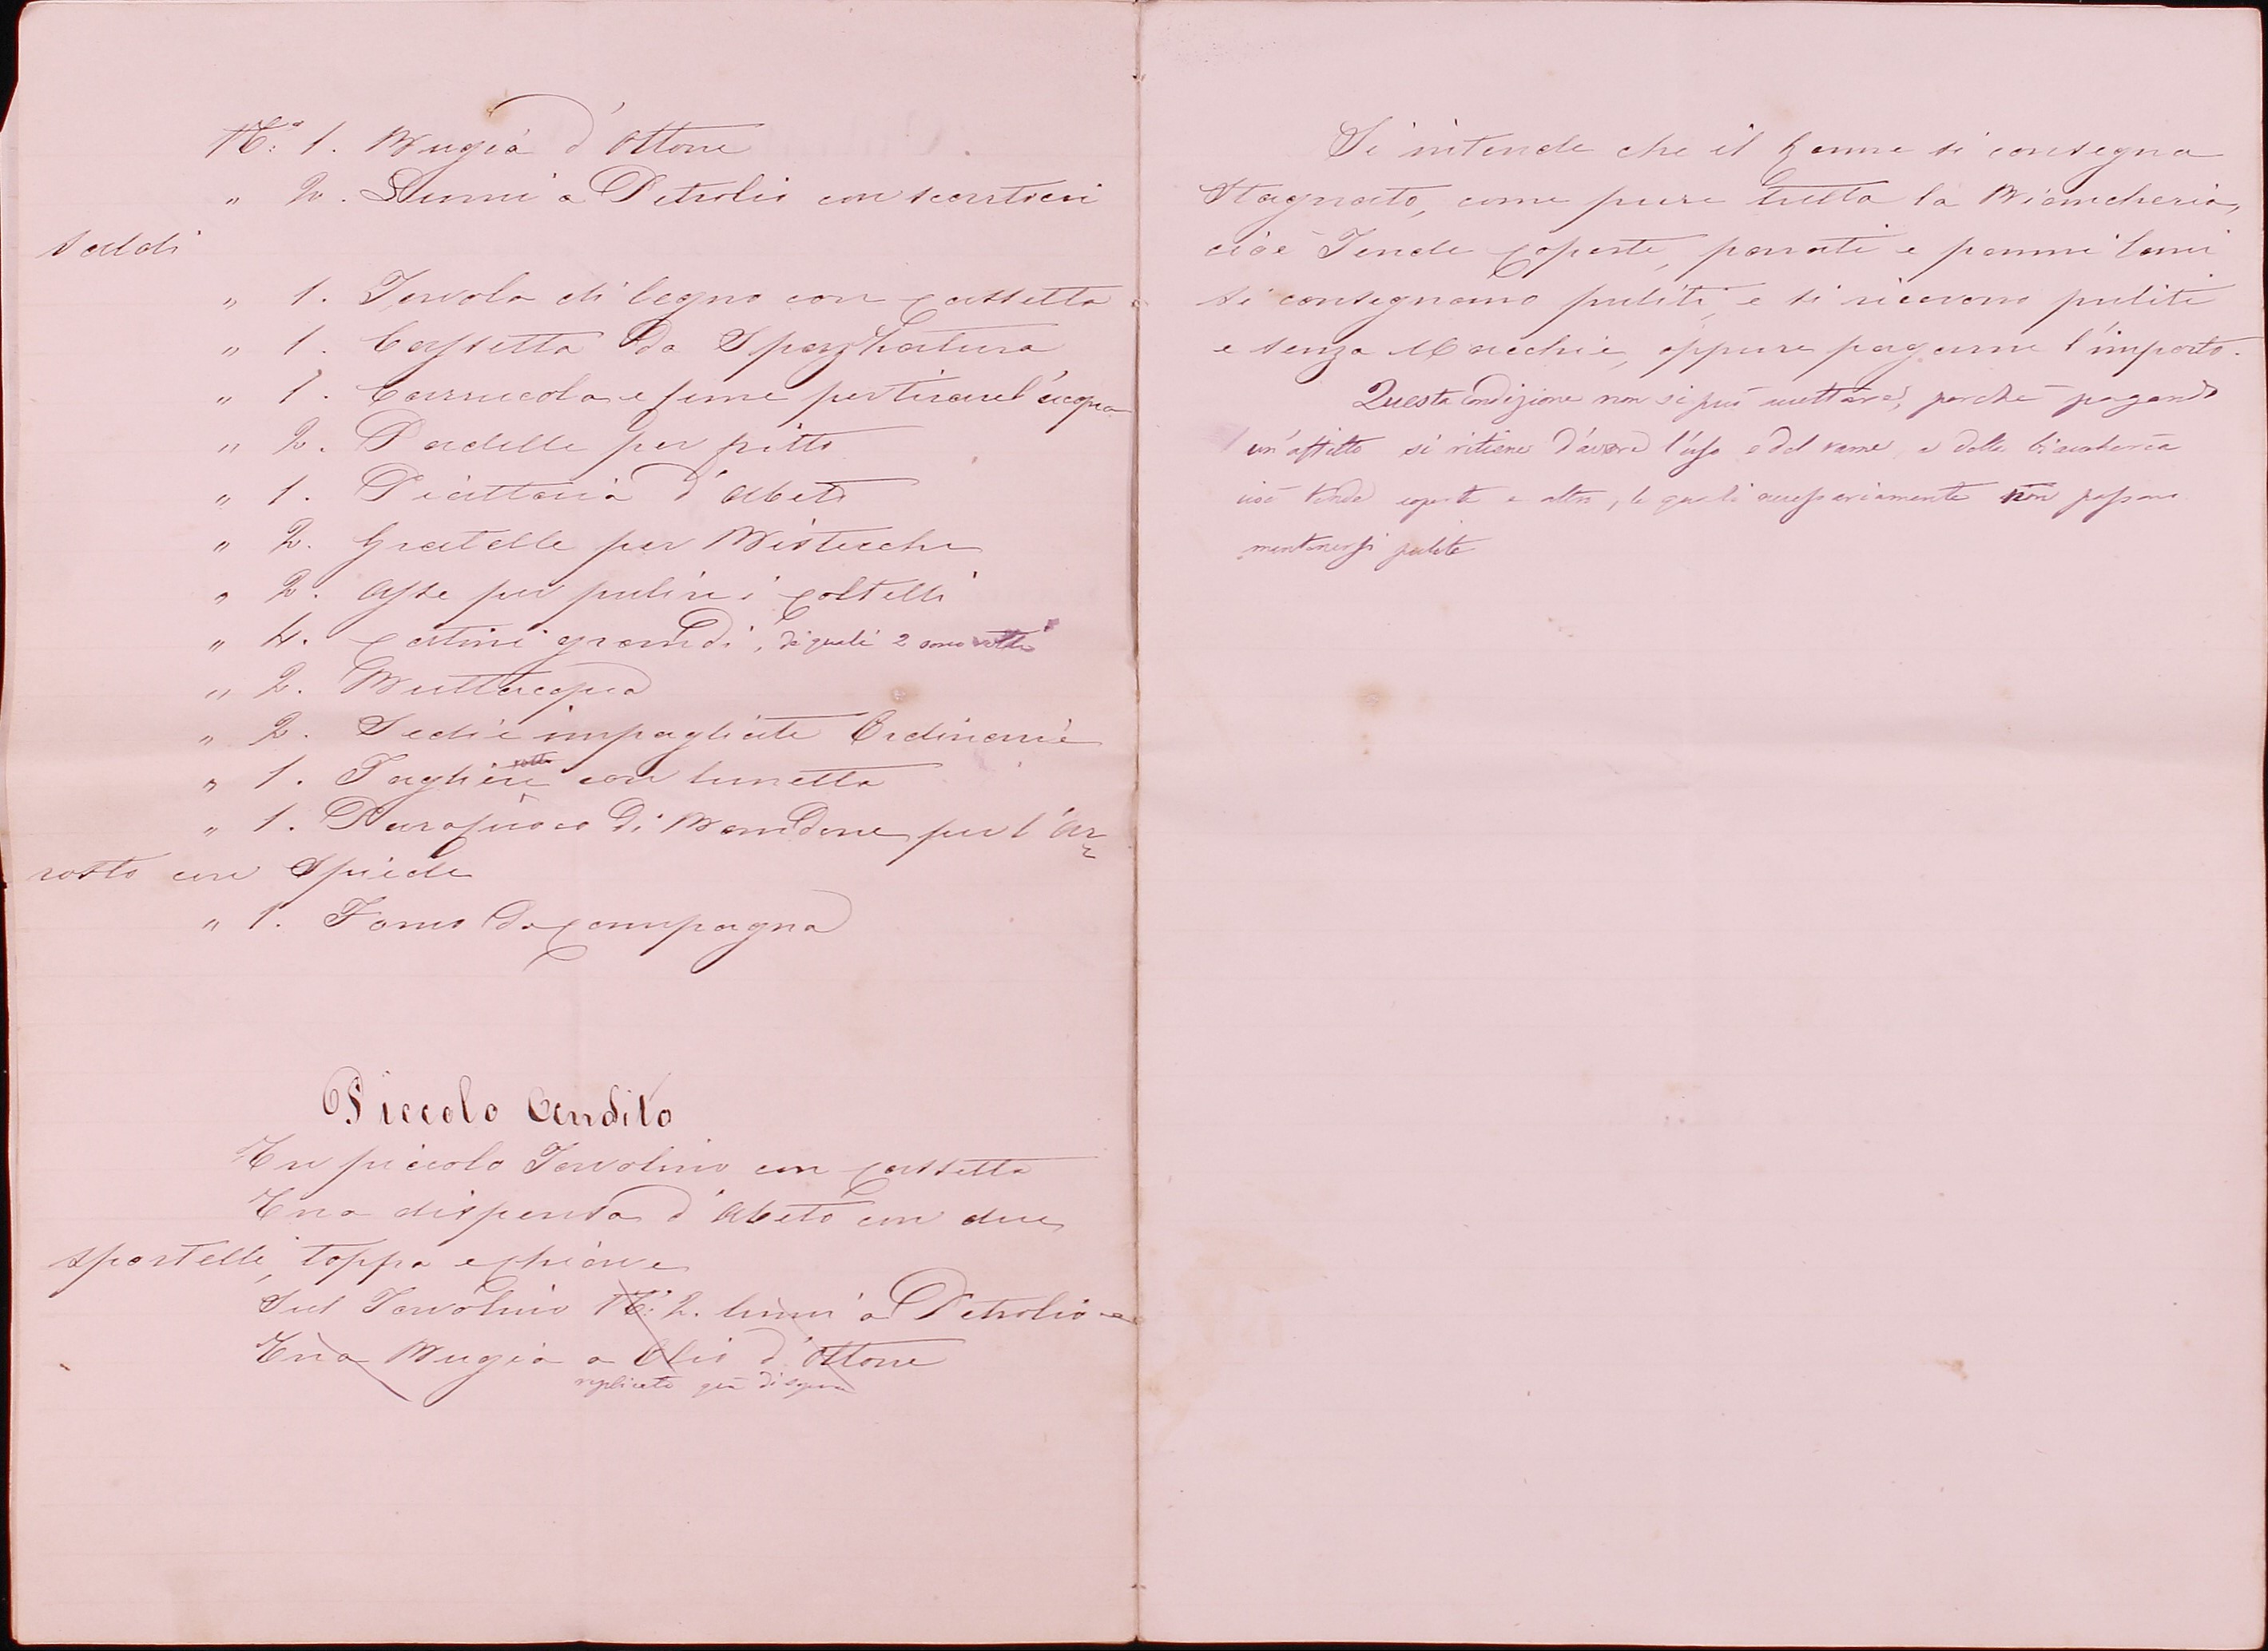 N.° 1. Bugia d'Ottone
" 2. Lumi a Petrolio con scartocci
saldi
" 1. Tavola di legno con Cassetta
" 1. Cassetta da Spazzatura
" 1. Carrucola e fune per tirare l'acqua
" 2. Padelle per fritto
" 1. Piattaia d'Abeto
" 2. Gratelle per Bistecche
" 2. Asse per pulire i Coltelli
" 4. Catini grandi, de quali 2 sono rotti
" 2. Buttacqua
" 2. Sedie impagliate Ordinarie
" 1. Tagliere rotto con lunetta
" 1. Parafuoco di Bandone per l'Ar=
rosto con Spiede
" 1. Forno da Campagna
Piccolo Andito
Un piccolo Tavolino con Cassetta
Una dispensa d'Abeto con due
sportelli, toppa e Chiave
Sul Tavolino N.° 2. lumi a Petrolio e
Una Bugia a Olio d'Ottone
replicato già di sopra
Si intende che il Rame si consegna
Stagnato, come pure tutta la Biancheria,
cioè Tende Coperte, parati e panni lani
si consegnano puliti, e si ricevono puliti
e senza Macchie, oppure pagarne l'importo.
Questa Condizione non si può accettare, perchè pagando
un'affitto si ritiene d'avere l'uso e del rame e della biancheria
cioè tende coperte e altro, le quali necessariamente non possono
mantenersi pulite